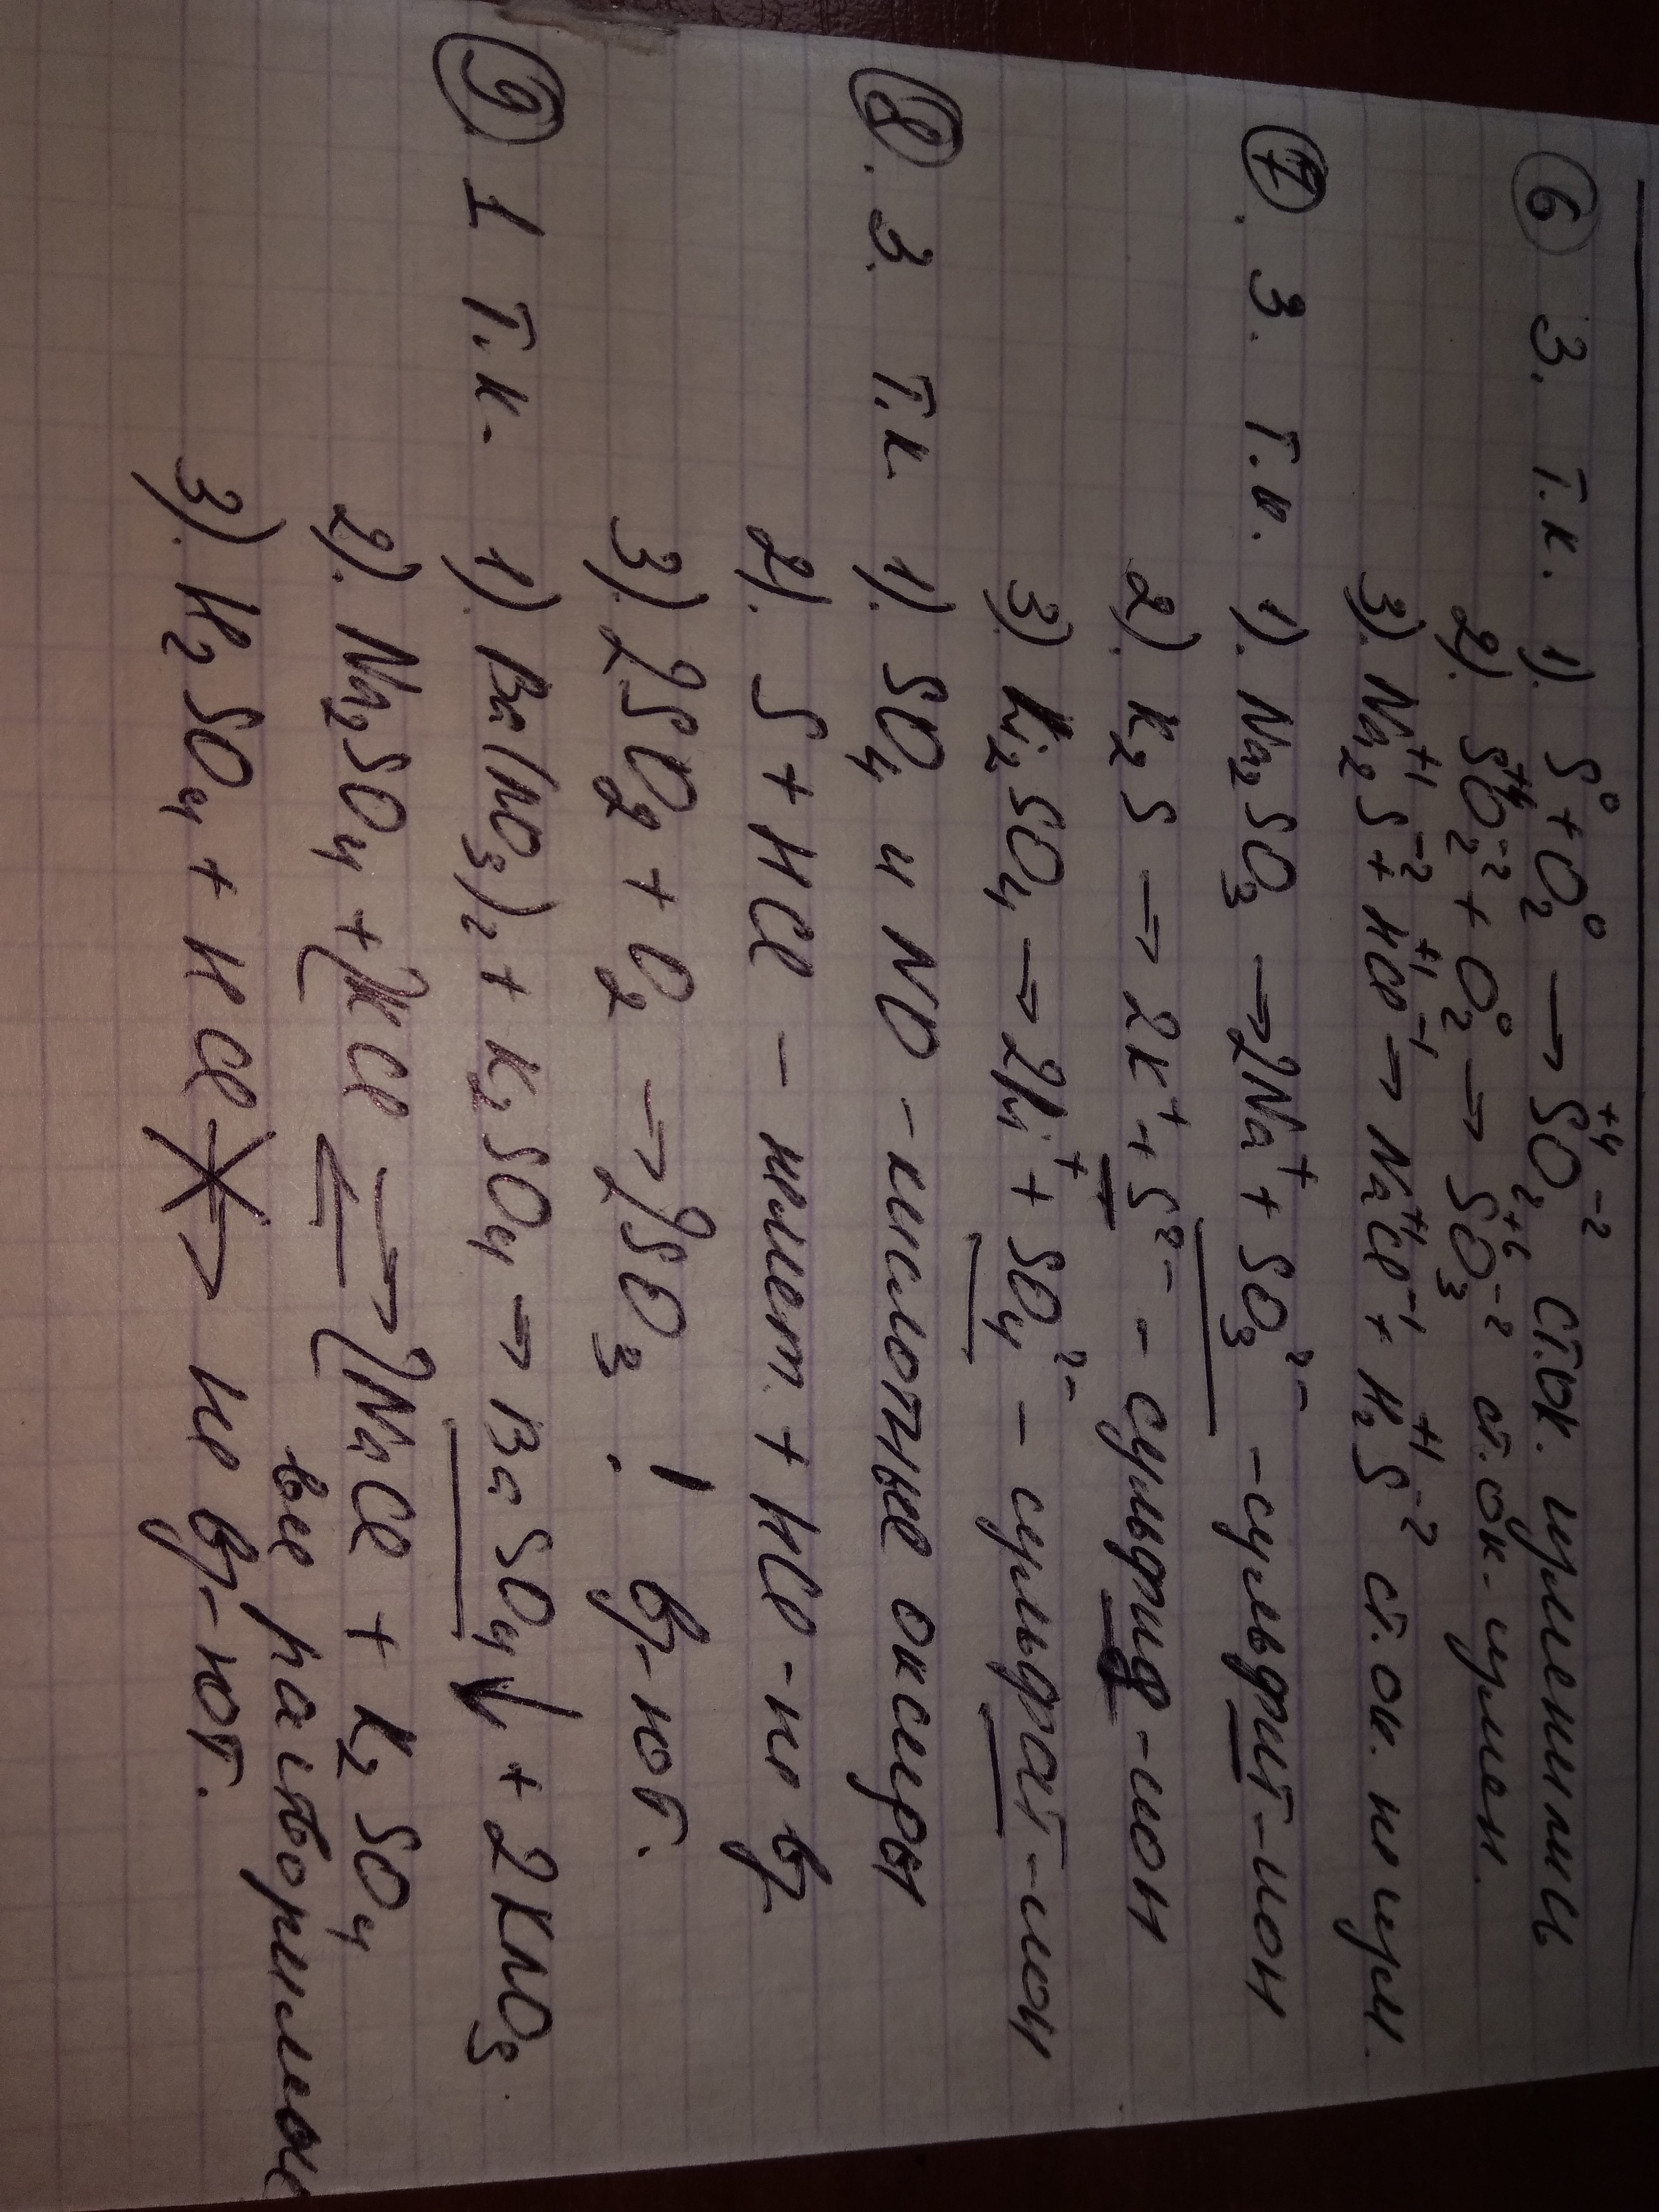 6 3. т.к. 1). S⁰ + O₂⁰ → S⁺⁴O₂⁻² ст.ок. изменились
2). S⁺⁴O₂⁻² + O₂⁰ → S⁺⁶O₃⁻² ст.ок. измен.
3). Na₂⁺¹S⁻² + H⁺¹Cl⁻¹ → Na⁺¹Cl⁻¹ + H₂⁺¹S⁻² ст.ок. не изм.
7. 3. т.к. 1). Na₂SO₃ → 2Na⁺ + SO₃²⁻ - сульфит-ион
2). K₂S → 2K⁺ + S²⁻ - сульфид-ион
3) Li₂SO₄ → 2Li⁺ + SO₄²⁻ - сульфат-ион
8. 3. т.к. 1). SO₄ и NO - кислотные оксиды
2). S + HCl - немет. + HCl - не вз.
3). 2SO₂ + O₂ → 2SO₃ ! вз-ют.
9. 1 т.к. 1). Ba(NO₃)₂ + K₂SO₄ → BaSO₄↓ + 2KNO₃.
2). Na₂SO₄ + 2KCl ⇄ 2NaCl + K₂SO₄
все растворимые
3). H₂SO₄ + HCl ↛ не вз-ют.